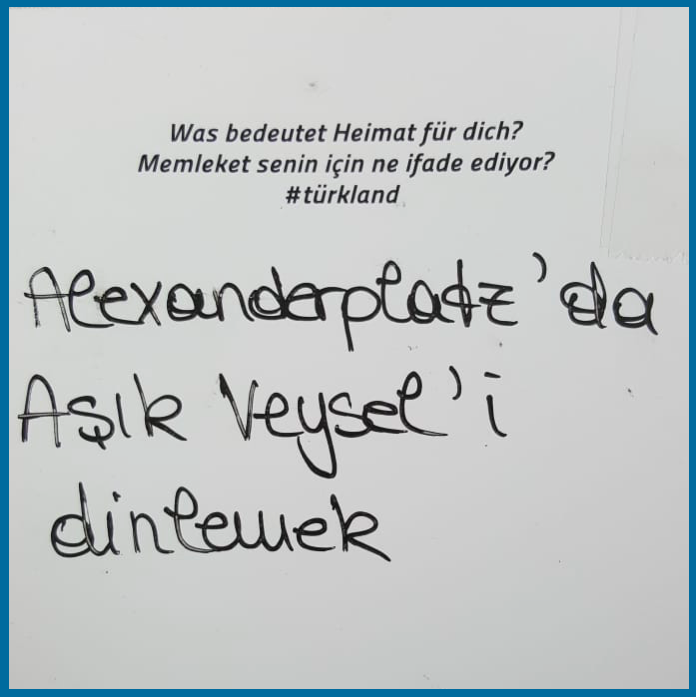 Was bedeutet Heimat für dich?
Memleket senin için ne ifade ediyor?
#türkland
Alexanderplatz'da
Aşık Veysel'i
dinlemek